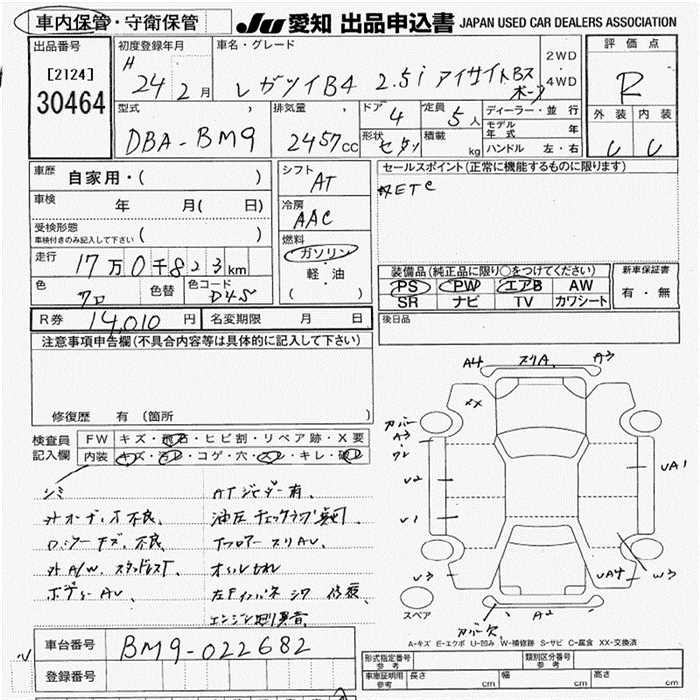 車内保管・守衛保管
JU 愛知 出品申込書 JAPAN USED CAR DEALERS ASSOCIATION
出品番号
[2124]
30464
初度登録年月
H 24年 2月
車名・グレード
レガツイB4 2.5i アイサイトBスポーツ
2WD
4WD
評価点
R
外装 内装
U U
型式
DBA-BM9
排気量
2457cc
ドア 4
形状 セダン
定員 5人
積載 kg
ディーラー・並行
モデル年式 年
ハンドル 左・右
車歴 自家用・( )
車検 年 月( 日)
受検形態
車検付きのみ記入して下さい ( )
走行 17万0千823km
色 クロ 色替 色コード D4S
シフト AT
冷房 AAC
燃料
ガソリン
軽・油
( )
セールスポイント(正常に機能するものに限ります)
ETC
装備品(純正品に限り○をつけてください)
PS PW エアB AW
SR ナビ TV カワシート
新車保証書
有・無
R券 14,010円 名変期限 月 日
後日品
注意事項申告欄(不具合内容等は具体的に記入して下さい)
修復歴 有(箇所 )
検査員記入欄
FW キズ・飛石・ヒビ割・リペア跡・X要
内装 キズ・汚レ・コゲ・穴・スレ・キレ・破レ
シミ
外オーディオ不良、
外A/W、スタッドレスT、
ボディーAU、
ATジャダー有、
油圧チェックランプ点灯
下フロアースリAU、
オイルもれ
エンジン廻り異音、
A4 スリA、 A3
XX
カバー
A3
ワレ
U2
U1
U3
UA1
UA4
W3
A2
カバー欠
スペア
A-キズ E-エクボ U-凹み W-補修跡 S-サビ C-腐食 XX-交換済
車台番号 BM9-022682
登録番号
形式指定番号 参考
類別区分番号 参考
車庫証明用 参考 長さ cm 幅 cm 高さ cm